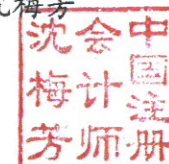 沈梅芳
中国注册
会计师
沈梅芳